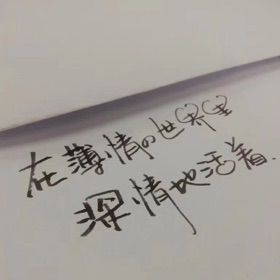 在薄情の世界里
深情地活着.